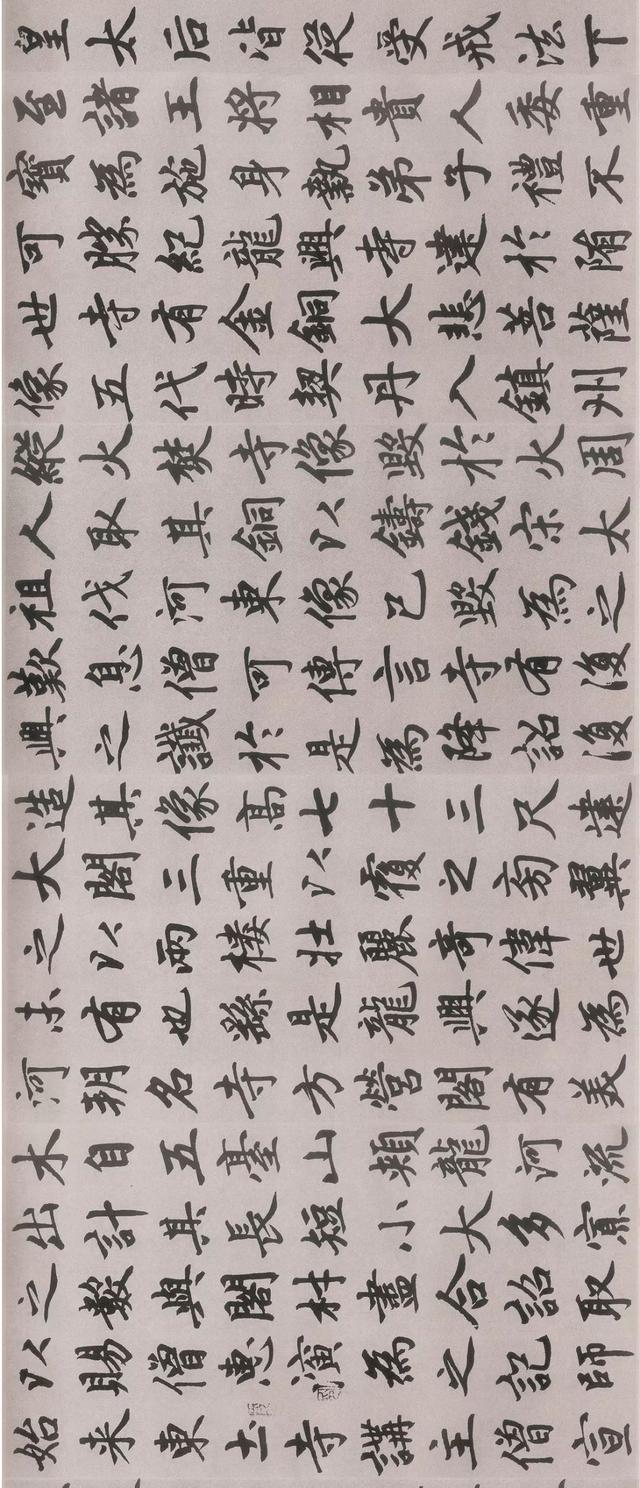 皇太后皆從受戒法下
至諸王將相貴人委重
寶為施身執弟子禮不
可勝紀龍興寺建於隋
世寺有金銅大悲菩薩
像五代時契丹入鎮州
縱火焚寺像毀於火周
人取其銅以鑄錢宋太
祖伐河東像已毀為之
歎息僧可傳言寺有復
興之讖於是為降詔復
造其像高七十三尺建
大閣三重以覆之旁翼
之以兩樓壯麗奇偉世
未有也繇是龍興遂為
河朔名寺方營閣有美
木自五臺山頰龍河流
出計其長短小大多寡
之數與閣材盡合詔取
以賜僧惠演為之記師
始来東土寺講主僧宣